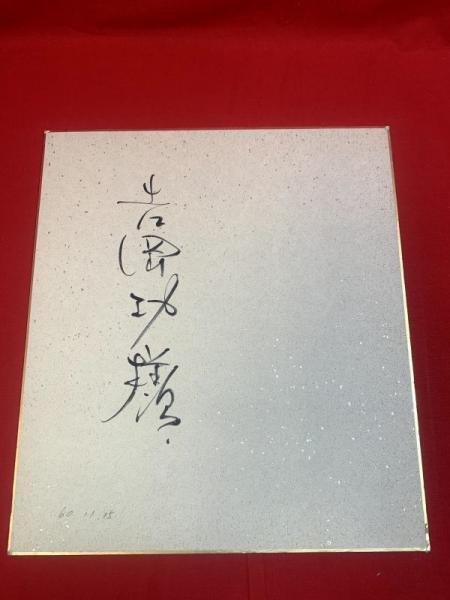 吉岡功
60.11.15